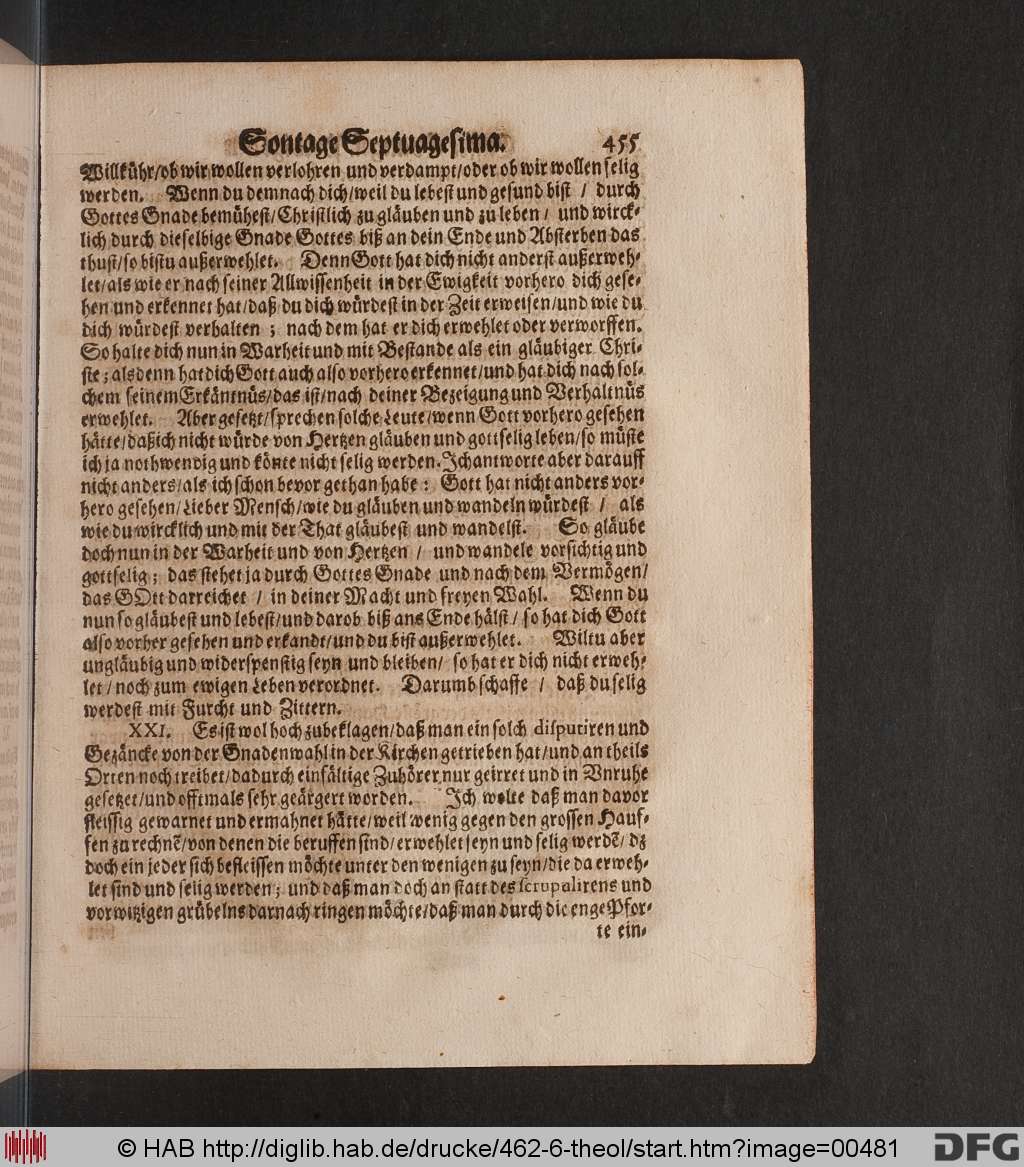 Sontage Septuagesima. 455
Willkühr/ob wir wollen verlohren und verdampt/oder ob wir wollen selig
werden. Wenn du demnach dich/weil du lebest und gesund bist / durch
Gottes Gnade bemühest/Christlich zu gläuben und zu leben / und wirck-
lich durch dieselbige Gnade Gottes biß an dein Ende und Absterben das
thust/so bistu außerwehlet. Denn Gott hat dich nicht anderst außerweh-
let/als wie er nach seiner Allwissenheit in der Ewigkeit vorhero dich gese-
hen und erkennet hat/daß du dich würdest in der Zeit erweisen/und wie du
dich würdest verhalten ; nach dem hat er dich erwehlet oder verworffen.
So halte dich nun in Warheit und mit Bestande als ein gläubiger Chri-
ste ; alsdenn hat dich Gott auch also vorhero erkennet/und hat dich nach sol-
chem seinem Erkäntnüs/das ist/nach deiner Bezeigung und Verhaltnüs
erwehlet. Aber gesetzt/sprechen solche Leute/wenn Gott vorhero gesehen
hätte/daß ich nicht würde von Hertzen gläuben und gottselig leben/so müste
ich ja nothwendig und könte nicht selig werden. Ich antworte aber darauff
nicht anders/als ich schon bevor gethan habe : Gott hat nicht anders vor-
hero gesehen/Lieber Mensch/wie du gläuben und wandeln würdest / als
wie du wircklich und mit der That gläubest und wandelst. So gläube
doch nun in der Warheit und von Hertzen / und wandele vorsichtig und
gottselig ; das stehet ja durch Gottes Gnade und nach dem Vermögen/
das GOtt darreichet / in deiner Macht und freyen Wahl. Wenn du
nun so gläubest und lebest/und darob biß ans Ende hälst / so hat dich Gott
also vorher gesehen und erkandt/und du bist außerwehlet. Wiltu aber
ungläubig und widerspenstig seyn und bleiben/ so hat er dich nicht erweh-
let / noch zum ewigen Leben verordnet. Darumb schaffe / daß du selig
werdest mit Furcht und Zittern.
XXI. Es ist wol hoch zubeklagen/daß man ein solch disputiren und
Gezäncke von der Gnadenwahl in der Kirchen getrieben hat/und an theils
Orten noch treibet/dadurch einfältige Zuhörer nur geirret und in Vnruhe
gesetzet/und offtmals sehr geärgert worden. Ich wolte daß man davor
fleissig gewarnet und ermahnet hätte/weil wenig gegen den grossen Hauf-
fen zu rechnẽ/von denen die beruffen sind/erwehlet seyn und selig werdẽ/ dz
doch ein jeder sich befleissen möchte unter den wenigen zu seyn/die da erweh-
let sind und selig werden ; und daß man doch an statt des scrupulirens und
vorwitzigen grübelns darnach ringen möchte/daß man durch die enge Pfor-
te ein-
© HAB http://diglib.hab.de/drucke/462-6-theol/start.htm?image=00481 DFG